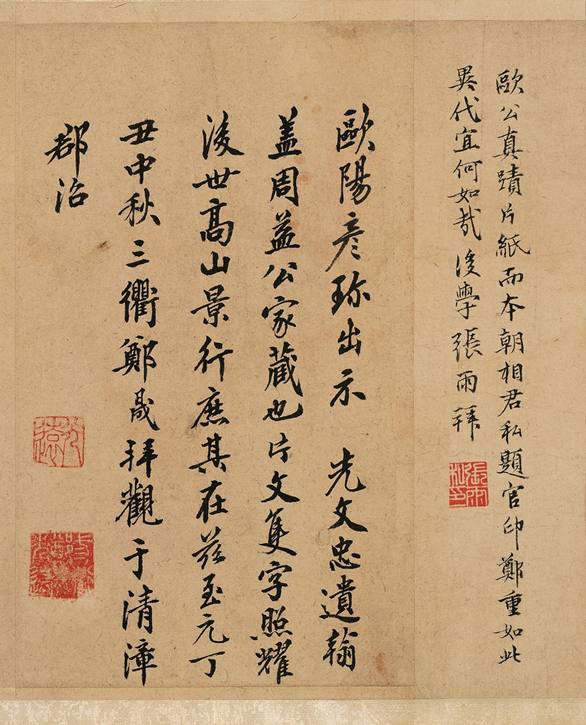 歐公真蹟片紙而本朝相君私題官印鄭重如此
異代宜何如哉後學張雨拜
歐陽彥珎出示 先文忠遺翰
盖周益公家藏也片文隻字照耀
後世高山景行庶其在兹至元丁
丑中秋三衢鄭晟拜觀于清漳
郡治